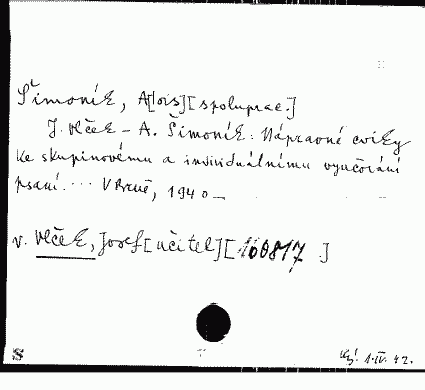 Šimoník, A[lois][spoluprac.]
J. Vlček - A. Šimoník: Nápravné cviky
ke skupinovému a individuálnímu vyučování
psaní.... V Brně, 1940 -
v. Vlček, Josef [učitel] [160817]
S
1.IV.42.